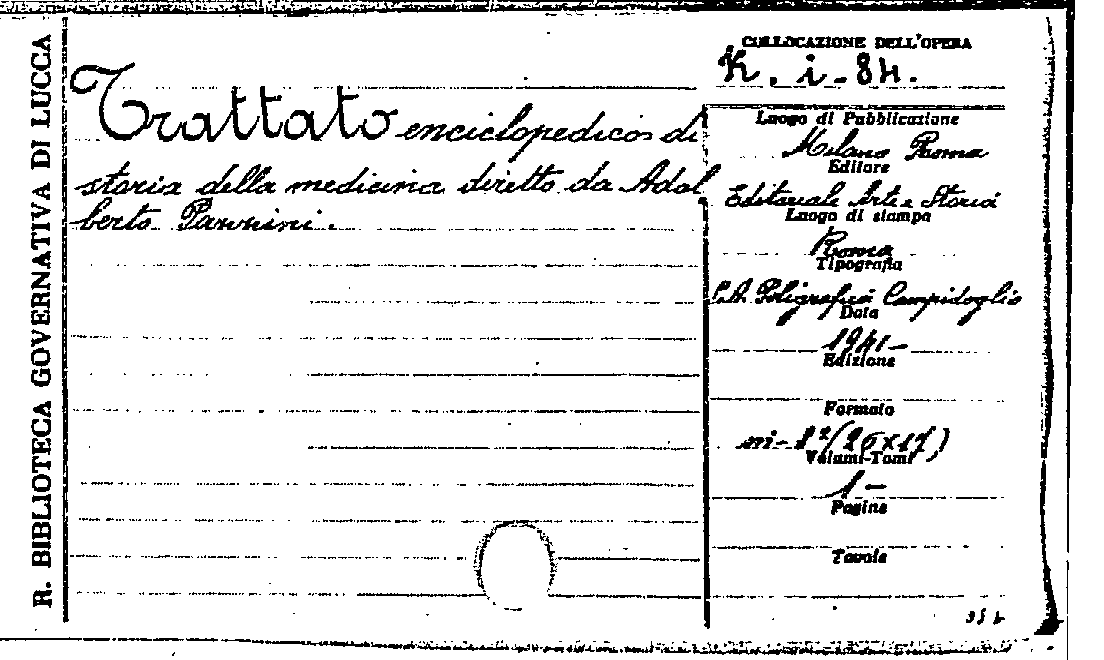 R. BIBLIOTECA GOVERNATIVA DI LUCCA
Trattato enciclopedico di
storia della medicina diretto da Adal
berto Pazzini.
COLLOCAZIONE DELL'OPERA
K. i - 84.
Luogo di Pubblicazione
Milano Roma
Editore
Editoriale Arte e Storia
Luogo di stampa
Roma
Tipografia
S.A. Poligrafica Campidoglio
Data
1941-
Edizione
Formato
in-8º (25x17)
Volumi-Tomi
1-
Pagine
Tavole